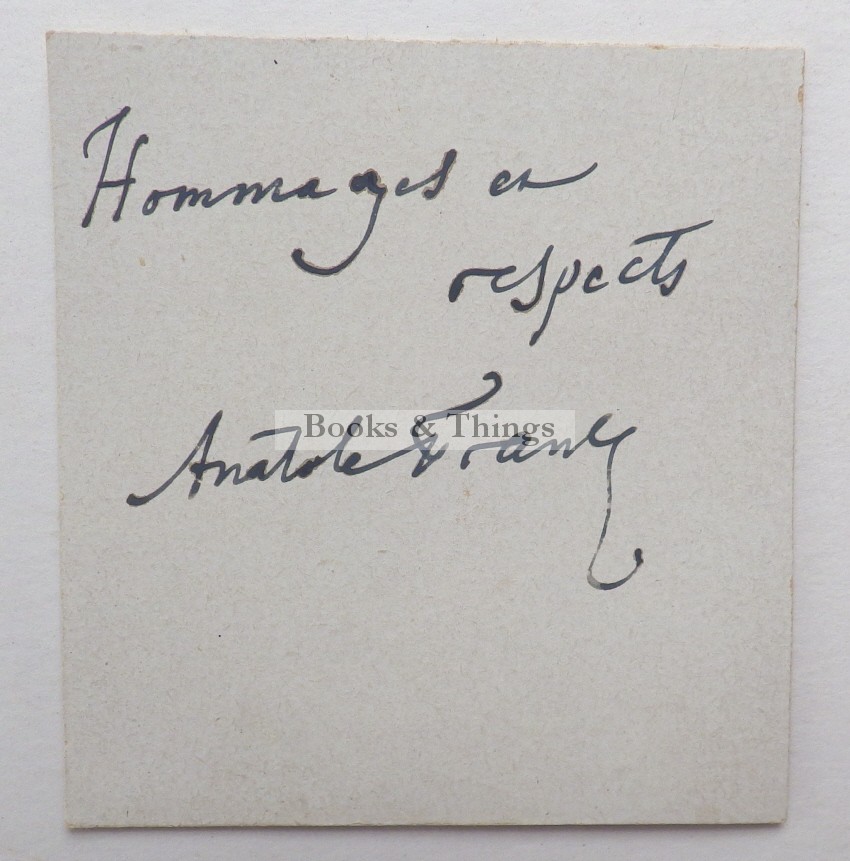 Hommages et
respects
Books & Things
Anatole France